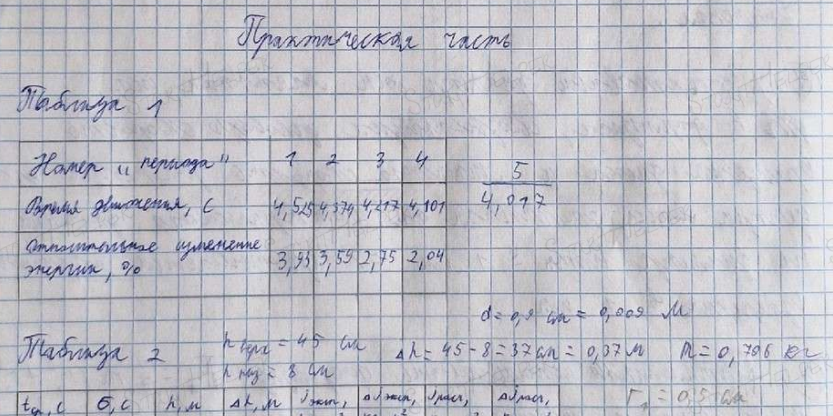 Практическая часть
Таблица 1
Номер "периода" 1 2 3 4 5
Время движения, с 4,525 4,374 4,217 4,101 4,017
относительное изменение
энергии, % 3,93 3,59 2,75 2,04
d = 0,9 см = 0,009 м
Таблица 2
h = 45 см
Δh = 45 - 8 = 37 см = 0,37 м
m = 0,706 кг
h = 8 см
σ, с h, м Δh, м